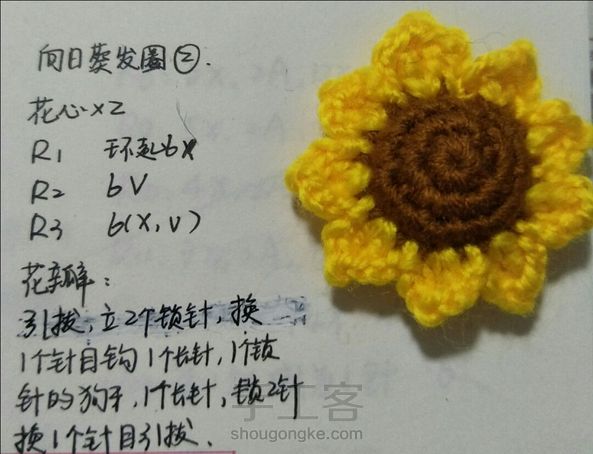 向日葵发圈②.
花心×2
R1 环起6X
R2 6V
R3 6(X,V)
花瓣:
引拔,立2个锁针,换
1个针目钩1个长针,1个锁
针的狗牙,1个长针,锁2针
换1个针目引拔.
手工客
shougongke.com